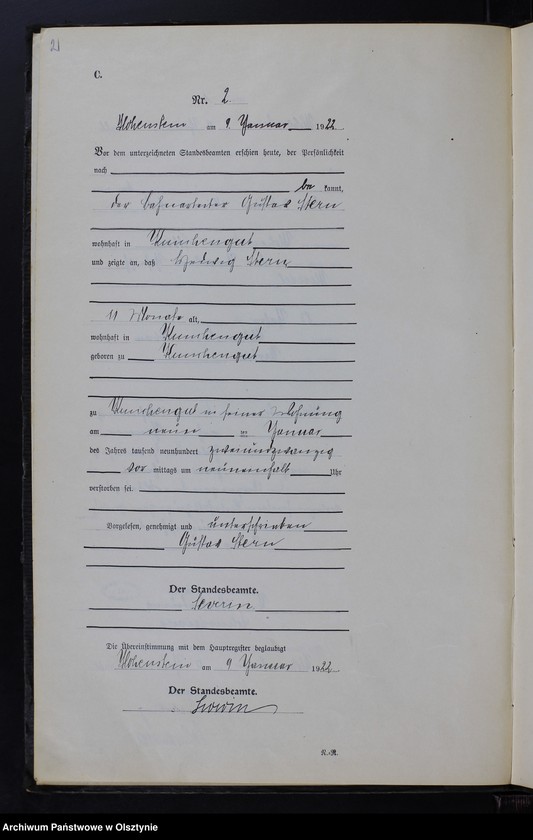 21
C.
Nr. 2.
Hohenstein am 9. Januar 1922
Vor dem unterzeichneten Standesbeamten erschien heute, der Persönlichkeit
nach
be kannt,
der Bahnarbeiter Gustav Stern
wohnhaft in Kunchengut
und zeigte an, daß Hedwig Stern
11 Monate alt,
wohnhaft in Kunchengut
geboren zu Kunchengut
zu Kunchengut in seiner Wohnung
am neun ten Januar
des Jahres tausend neunhundert zweiundzwanzig
vor mittags um neuneinhalb Uhr
verstorben sei.
Vorgelesen, genehmigt und unterschrieben
Gustav Stern
Der Standesbeamte.
Severin
Die Übereinstimmung mit dem Hauptregister beglaubigt
Hohenstein am 9 Januar 1922.
Der Standesbeamte.
N.-R.
Archiwum Państwowe w Olsztynie